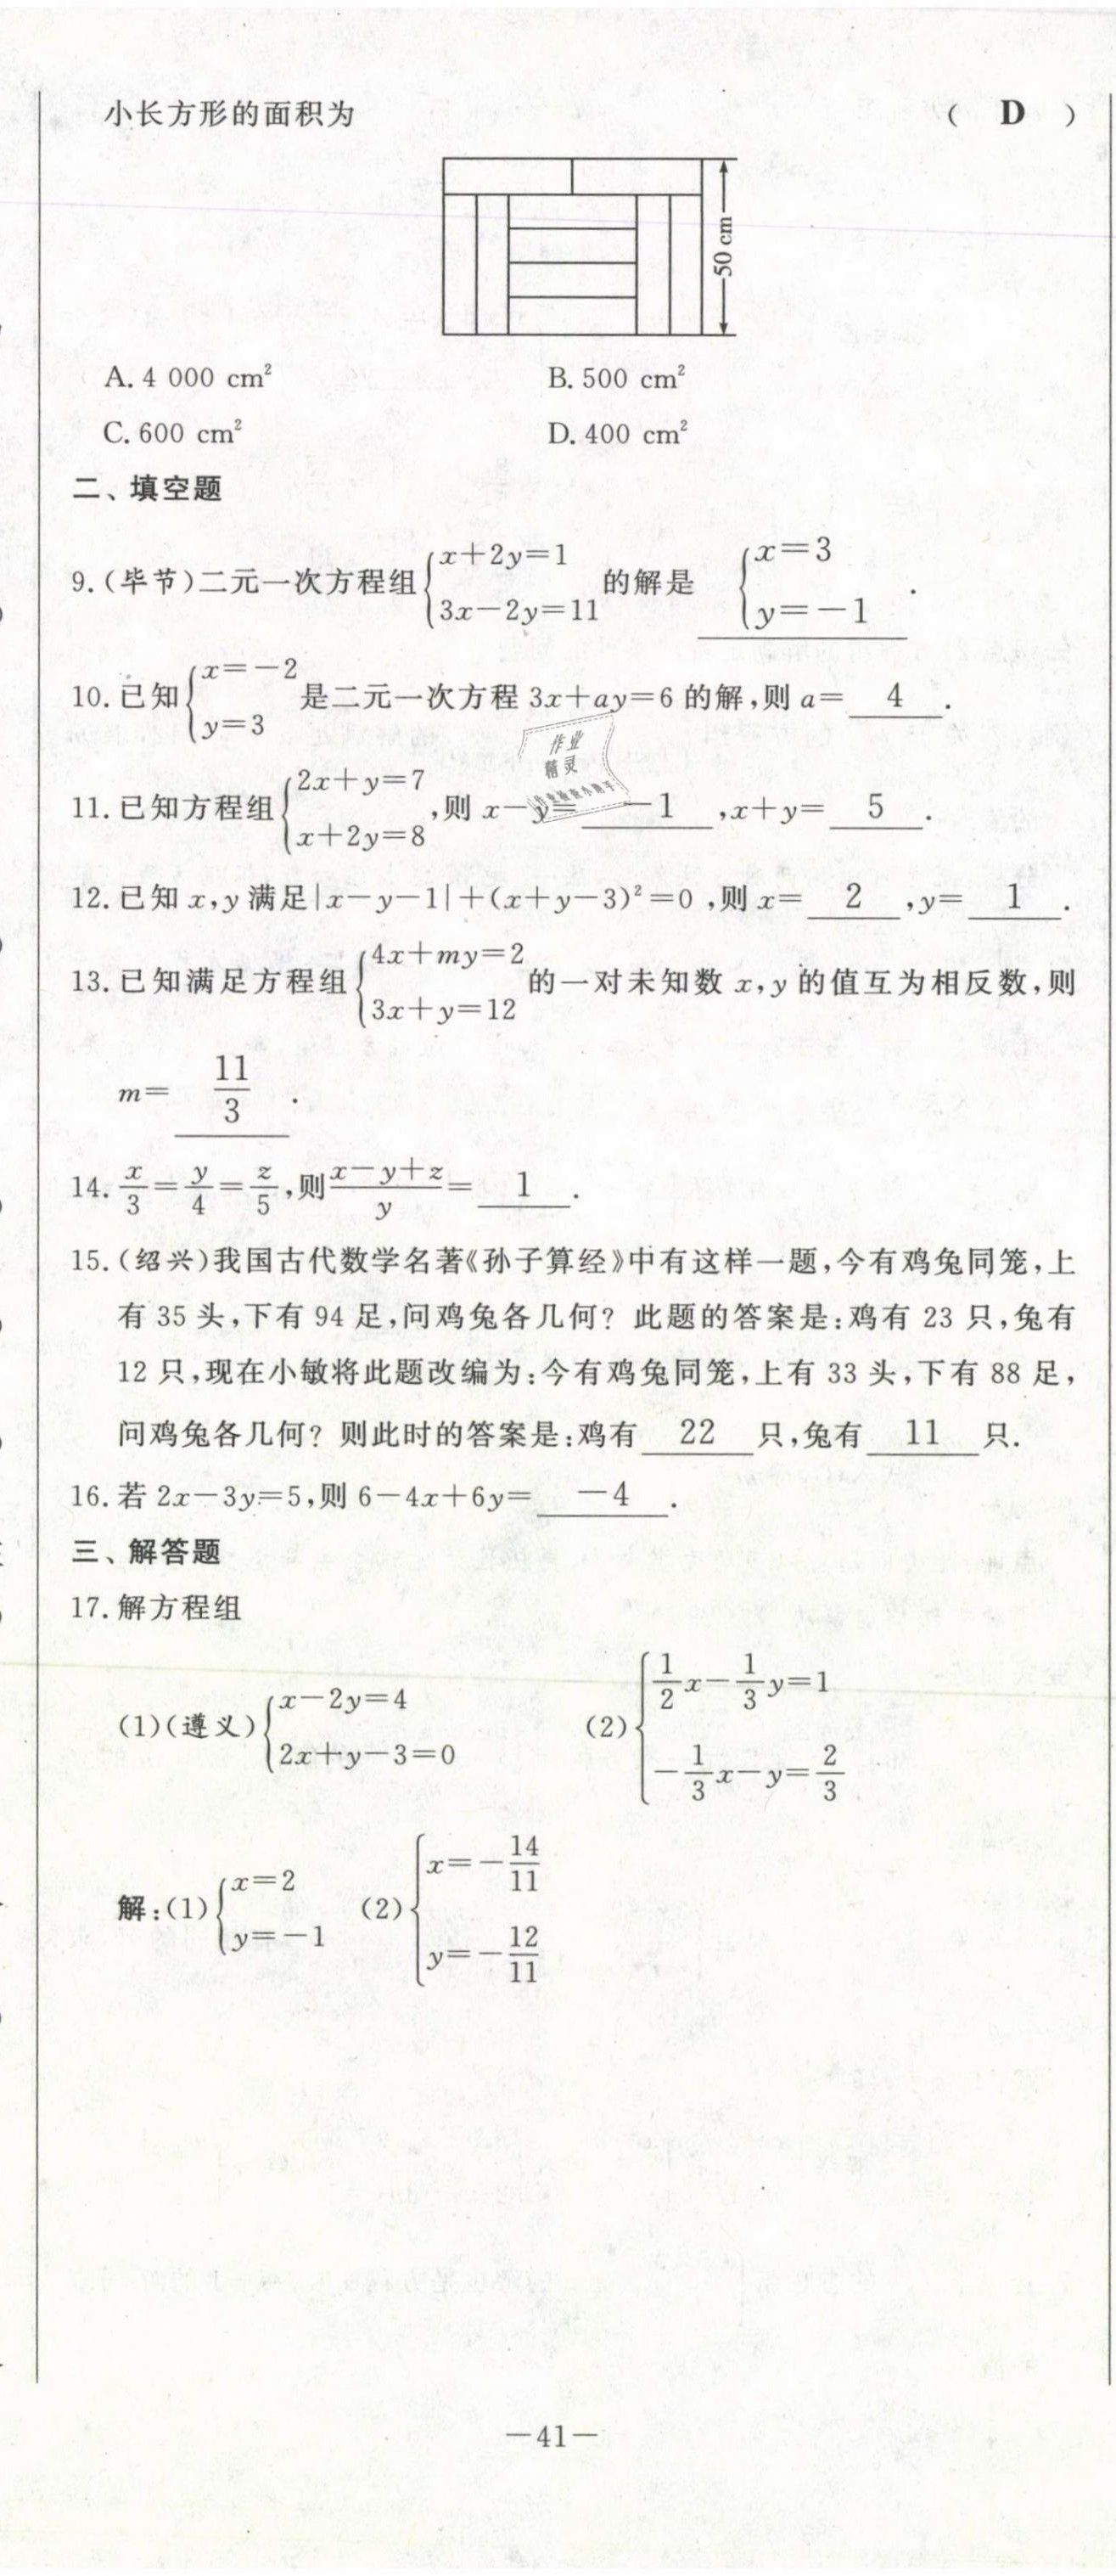 小长方形的面积为 ( D )
50 cm
A. 4 000 cm² B. 500 cm²
C. 600 cm² D. 400 cm²
二、填空题
9.(毕节)二元一次方程组{x+2y=1 3x-2y=11 的解是 {x=3 y=-1 .
10. 已知{x=-2 y=3 是二元一次方程 3x+ay=6 的解,则 a= 4 .
11. 已知方程组{2x+y=7 x+2y=8 ,则 x-y= -1 ,x+y= 5 .
作业
精灵
12. 已知 x,y 满足|x-y-1|+(x+y-3)²=0 ,则 x= 2 ,y= 1 .
13. 已知满足方程组{4x+my=2 3x+y=12 的一对未知数 x,y 的值互为相反数,则
m= 11/3 .
14. x/3=y/4=z/5,则(x-y+z)/y= 1 .
15.(绍兴)我国古代数学名著《孙子算经》中有这样一题,今有鸡兔同笼,上
有 35 头,下有 94 足,问鸡兔各几何? 此题的答案是:鸡有 23 只,兔有
12 只,现在小敏将此题改编为:今有鸡兔同笼,上有 33 头,下有 88 足,
问鸡兔各几何? 则此时的答案是:鸡有 22 只,兔有 11 只.
16. 若 2x-3y=5,则 6-4x+6y= -4 .
三、解答题
17. 解方程组
(1)(遵义){x-2y=4 2x+y-3=0 (2){1/2x-1/3y=1 -1/3x-y=2/3
解:(1){x=2 y=-1 (2){x=-14/11 y=-12/11
-41-